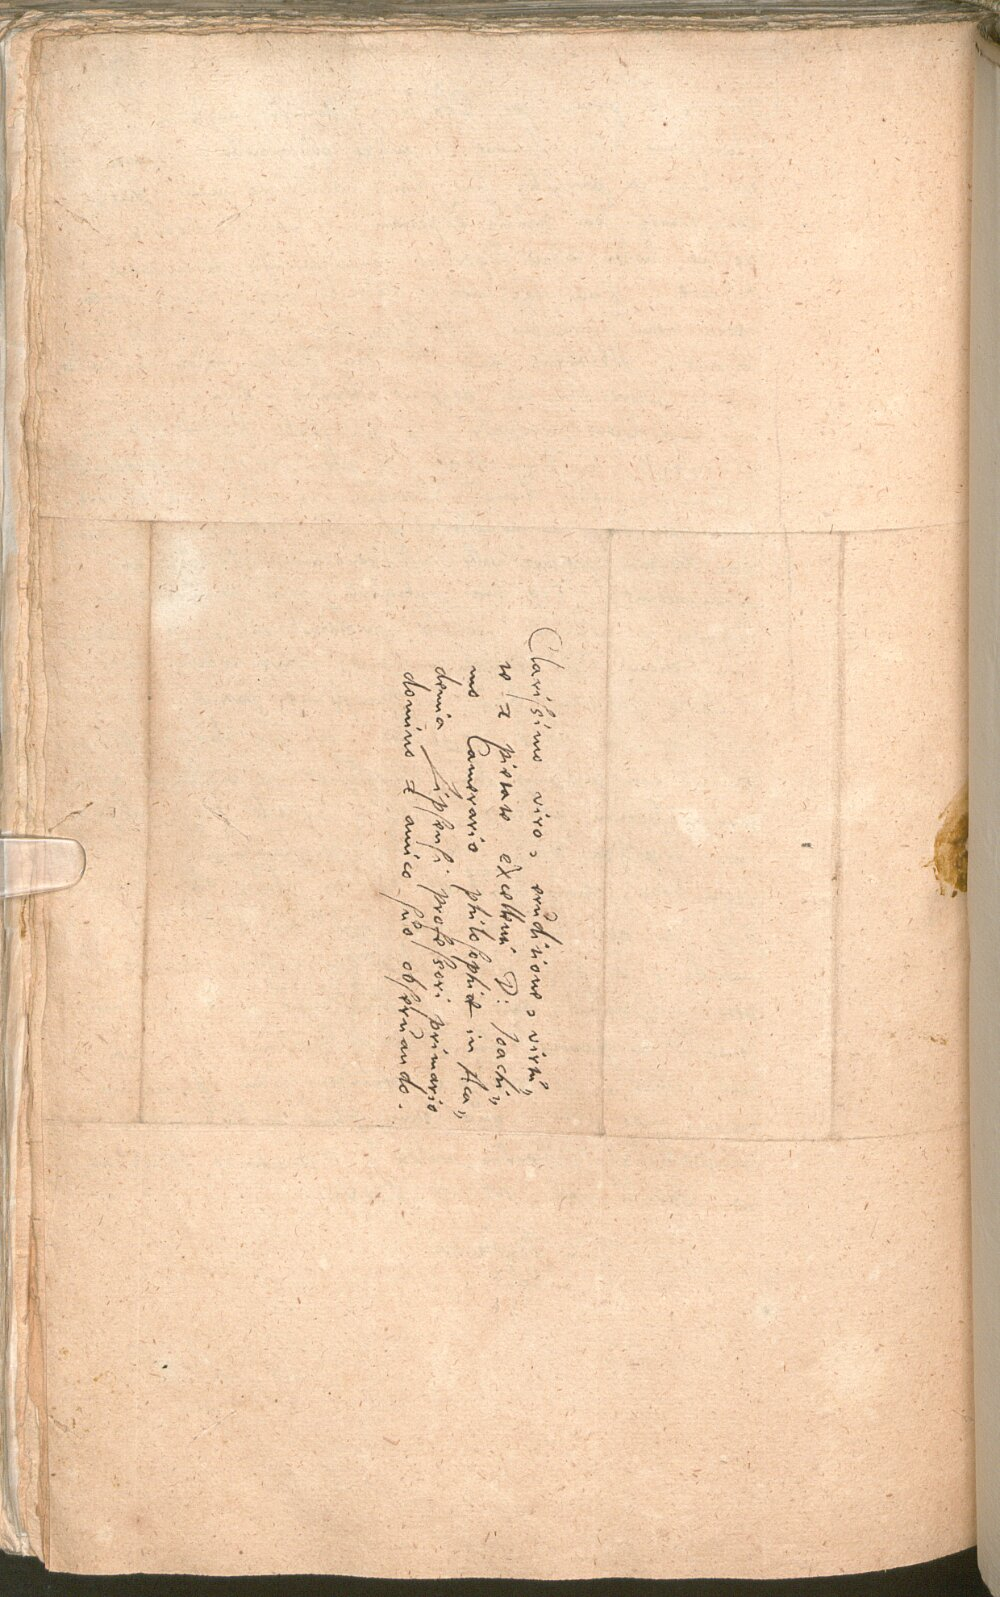 Clarissimo viro, eruditione, virtu„
te & pietate excellenti D: Joachi„
mo Camerario philosophiæ in Aca„
demia Lipsensi professori primario
domino & amico suo obseruando.